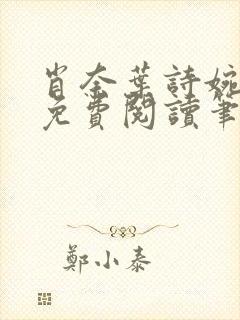 肖奈葉詩婉
免費閱讀筆
鄭小泰